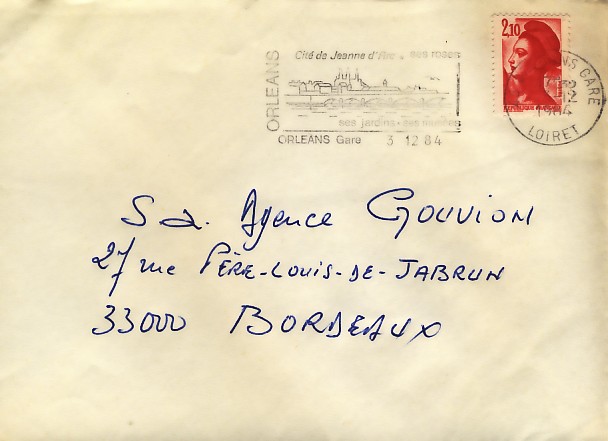 ORLEANS
Cité de Jeanne d'Arc . ses roses
ses jardins - ses musées
ORLEANS Gare 3 12 84
2,10
ORLEANS GARE
3-12
1984
LOIRET
S a. Agence GOUVION
27 rue PÈRE-LOUIS-DE-JABRUN
33000 BORDEAUX